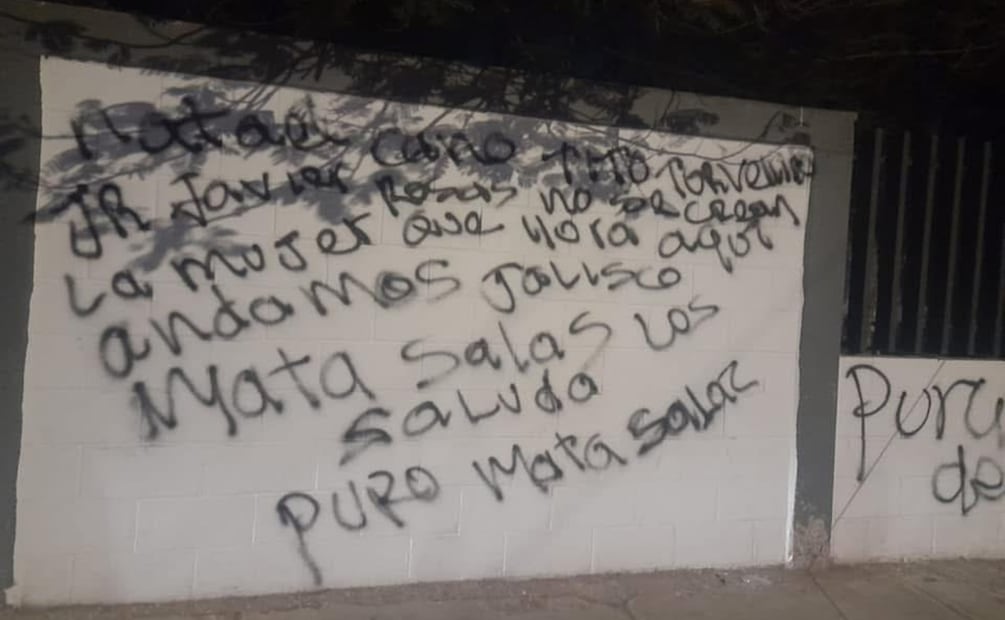 Natael cano TITO TorvellinO
JR Javier Rosas no se crean
La mujer que llora aqui
andamos Jalisco
Mata salas Los
saluda
puro Mata salaz
Pura
de